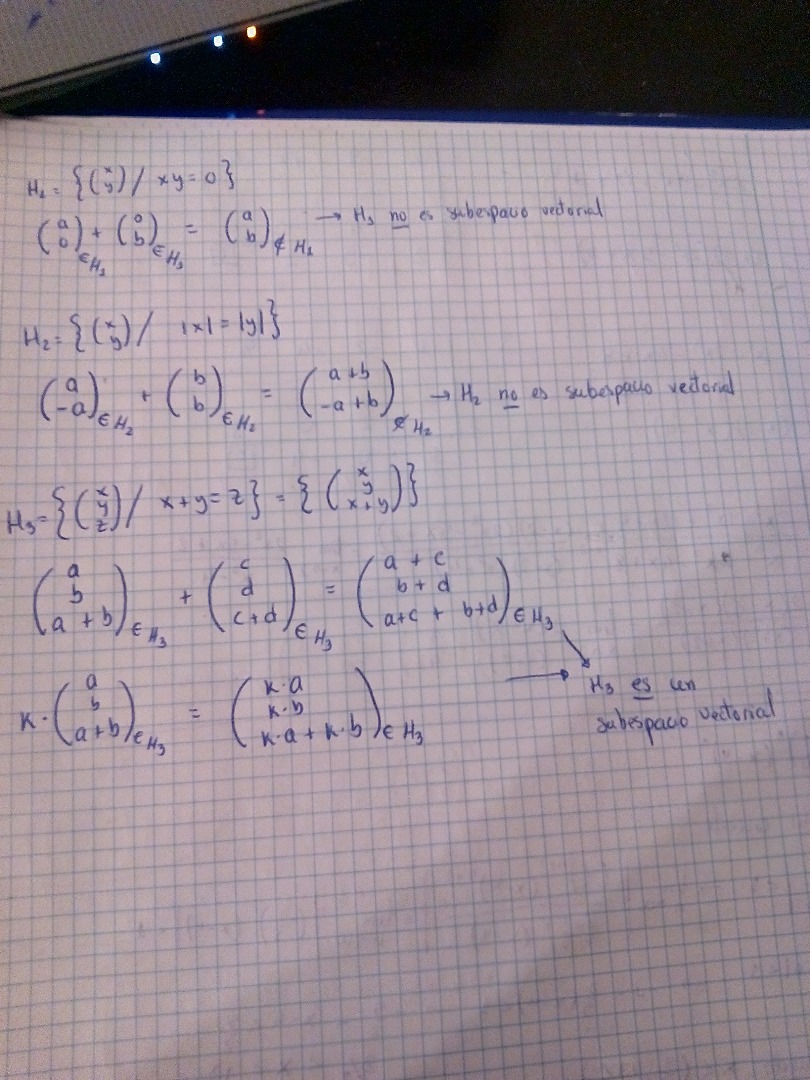 H₁ = {(x y) / xy = 0}
(a 0)∈H₁ + (0 b)∈H₁ = (a b)∉H₁ → H₁ no es subespacio vectorial
H₂ = {(x y) / |x| = |y|}
(a -a)∈H₂ + (b b)∈H₂ = (a+b -a+b)∉H₂ → H₂ no es subespacio vectorial
H₃ = {(x y z) / x+y = z} = {(x y x+y)}
(a b a+b)∈H₃ + (c d c+d)∈H₃ = (a+c b+d a+c + b+d)∈H₃
K·(a b a+b)∈H₃ = (K·a K·b K·a + K·b)∈H₃ → H₃ es un
subespacio vectorial